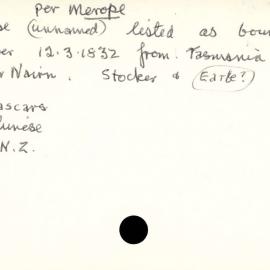 per Merope
se (unnamed) listed as boun
er 12.3.1832 from Tasmania
r Nairn. Stocker & (Earle?)
ascars
unese
N.Z.